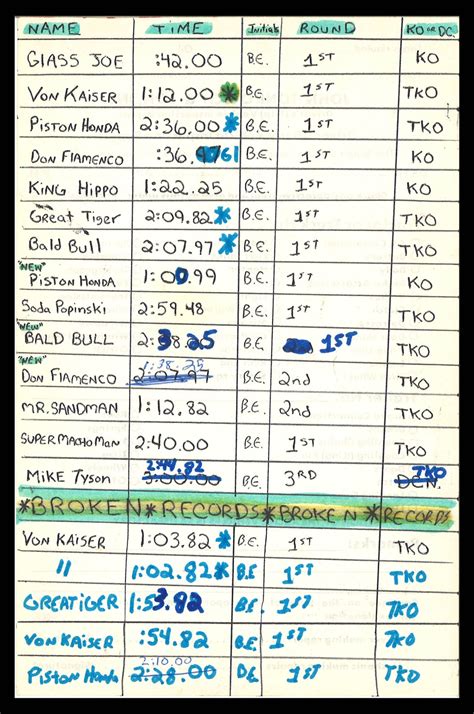 NAME TIME Initials ROUND KO OR DC.
GlASS JOE :42.00 B.E. 1ST KO
VON KAiSER 1:12.00* B.E. 1ST TKO
PiSTON HONDA 2:36.00* B.E. 1ST TKO
DON FlAMENCO :36. 61 B.E. 1ST KO
KiNG HiPPO 1:22.25 B.E. 1ST KO
Great Tiger 2:09.82* B.E. 1ST TKO
Bald Bull 2:07.97* B.E. 1ST TKO
"NEW"
PiSTON HONDA 1:00.99 B.E. 1ST TKO
Soda Popinski 2:59.48 B.E. 1ST TKO
"NEW"
BALD BULL 2:38.25 B.E 1ST TKO
"NEW" 1:38.25
DON FlAMENCO 2:07.97 B.E. 2nd TKO
MR.SANDMAN 1:12.82 B.E. 2nd TKO
SUPER MACHO MAN 2:40.00 B.E. 1ST TKO
2:44.82 TKO
MiKE TYSON 3:00.00 B.E. 3RD DCN.
*BROKEN*RECORDS*BROKEN*RECORDS
VON KAiSER 1:03.82* B.E. 1ST TKO
" 1:02.82* B.E 1ST TKO
GREATiGER 1:53.82 B.E. 1ST TKO
VON KAiSER :54.82 B.E. 1ST TKO
2:10.00
PiSTON HONDA 2:28.00 B.E 1ST TKO